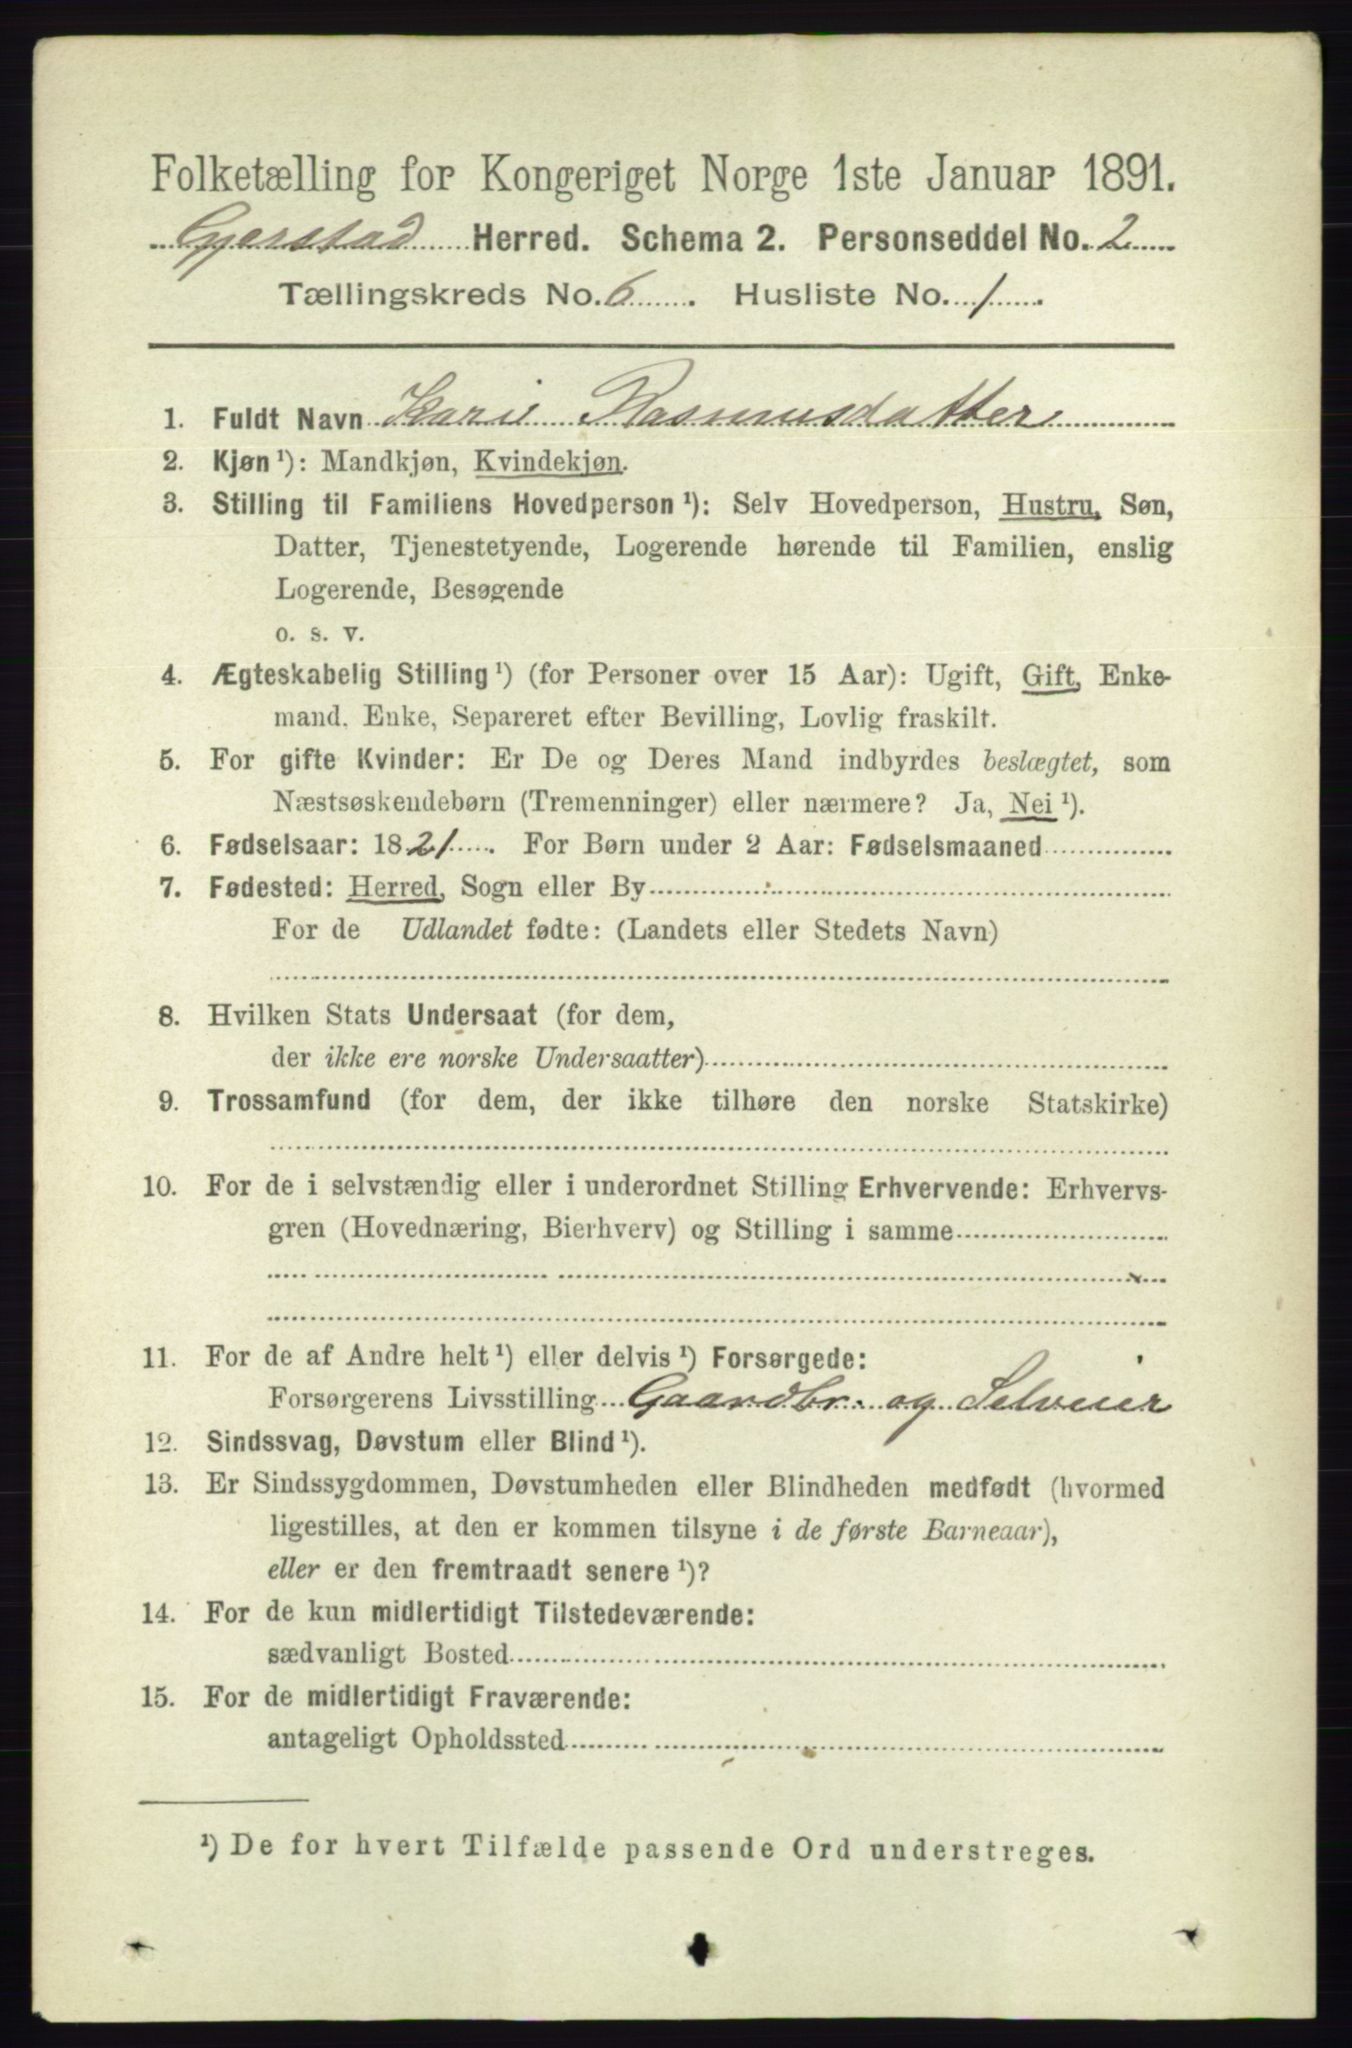 Folketælling for Kongeriget Norge 1ste Januar 1891.
Gjerstad Herred. Schema 2. Personseddel No. 2
Tællingskreds No. 6. Husliste No. 1.
1. Fuldt Navn Karie Rasmusdatter
2. Kjøn ¹): Mandkjøn, Kvindekjøn.
3. Stilling til Familiens Hovedperson ¹): Selv Hovedperson, Hustru, Søn,
Datter, Tjenestetyende, Logerende hørende til Familien, enslig
Logerende, Besøgende
o. s. v.
4. Ægteskabelig Stilling ¹) (for Personer over 15 Aar): Ugift, Gift, Enke-
mand, Enke, Separeret efter Bevilling, Lovlig fraskilt.
5. For gifte Kvinder: Er De og Deres Mand indbyrdes beslægtet, som
Næstsøskendebørn (Tremenninger) eller nærmere? Ja, Nei ¹).
6. Fødselsaar: 1821. For Børn under 2 Aar: Fødselsmaaned
7. Fødested: Herred, Sogn eller By
For de Udlandet fødte: (Landets eller Stedets Navn)
8. Hvilken Stats Undersaat (for dem,
der ikke ere norske Undersaatter)
9. Trossamfund (for dem, der ikke tilhøre den norske Statskirke)
10. For de i selvstændig eller i underordnet Stilling Erhvervende: Erhvervs-
gren (Hovednæring, Bierhverv) og Stilling i samme
11. For de af Andre helt ¹) eller delvis ¹) Forsørgede:
Forsørgerens Livsstilling Gaardbr. og Selveier
12. Sindssvag, Døvstum eller Blind ¹).
13. Er Sindssygdommen, Døvstumheden eller Blindheden medfødt (hvormed
ligestilles, at den er kommen tilsyne i de første Barneaar),
eller er den fremtraadt senere ¹)?
14. For de kun midlertidigt Tilstedeværende:
sædvanligt Bosted
15. For de midlertidigt Fraværende:
antageligt Opholdssted
¹) De for hvert Tilfælde passende Ord understreges.